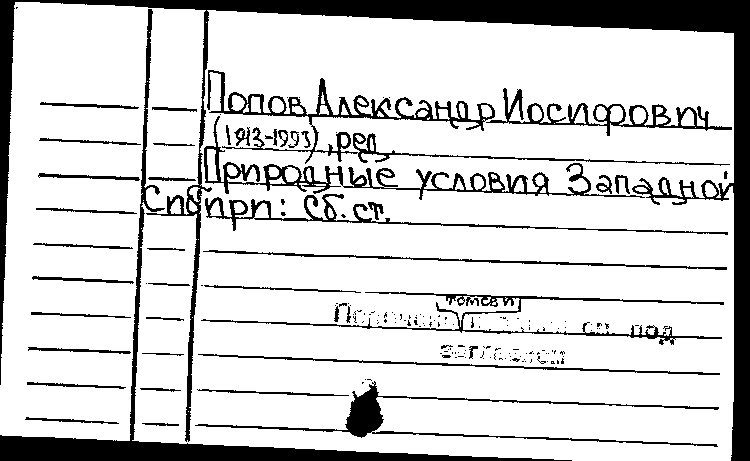 Попов, Александр Иосифович
(1913-1993), ред.
Природные условия Западной
Сибири: Сб. ст.
томов и
Перечень изданий см. под
заглавием